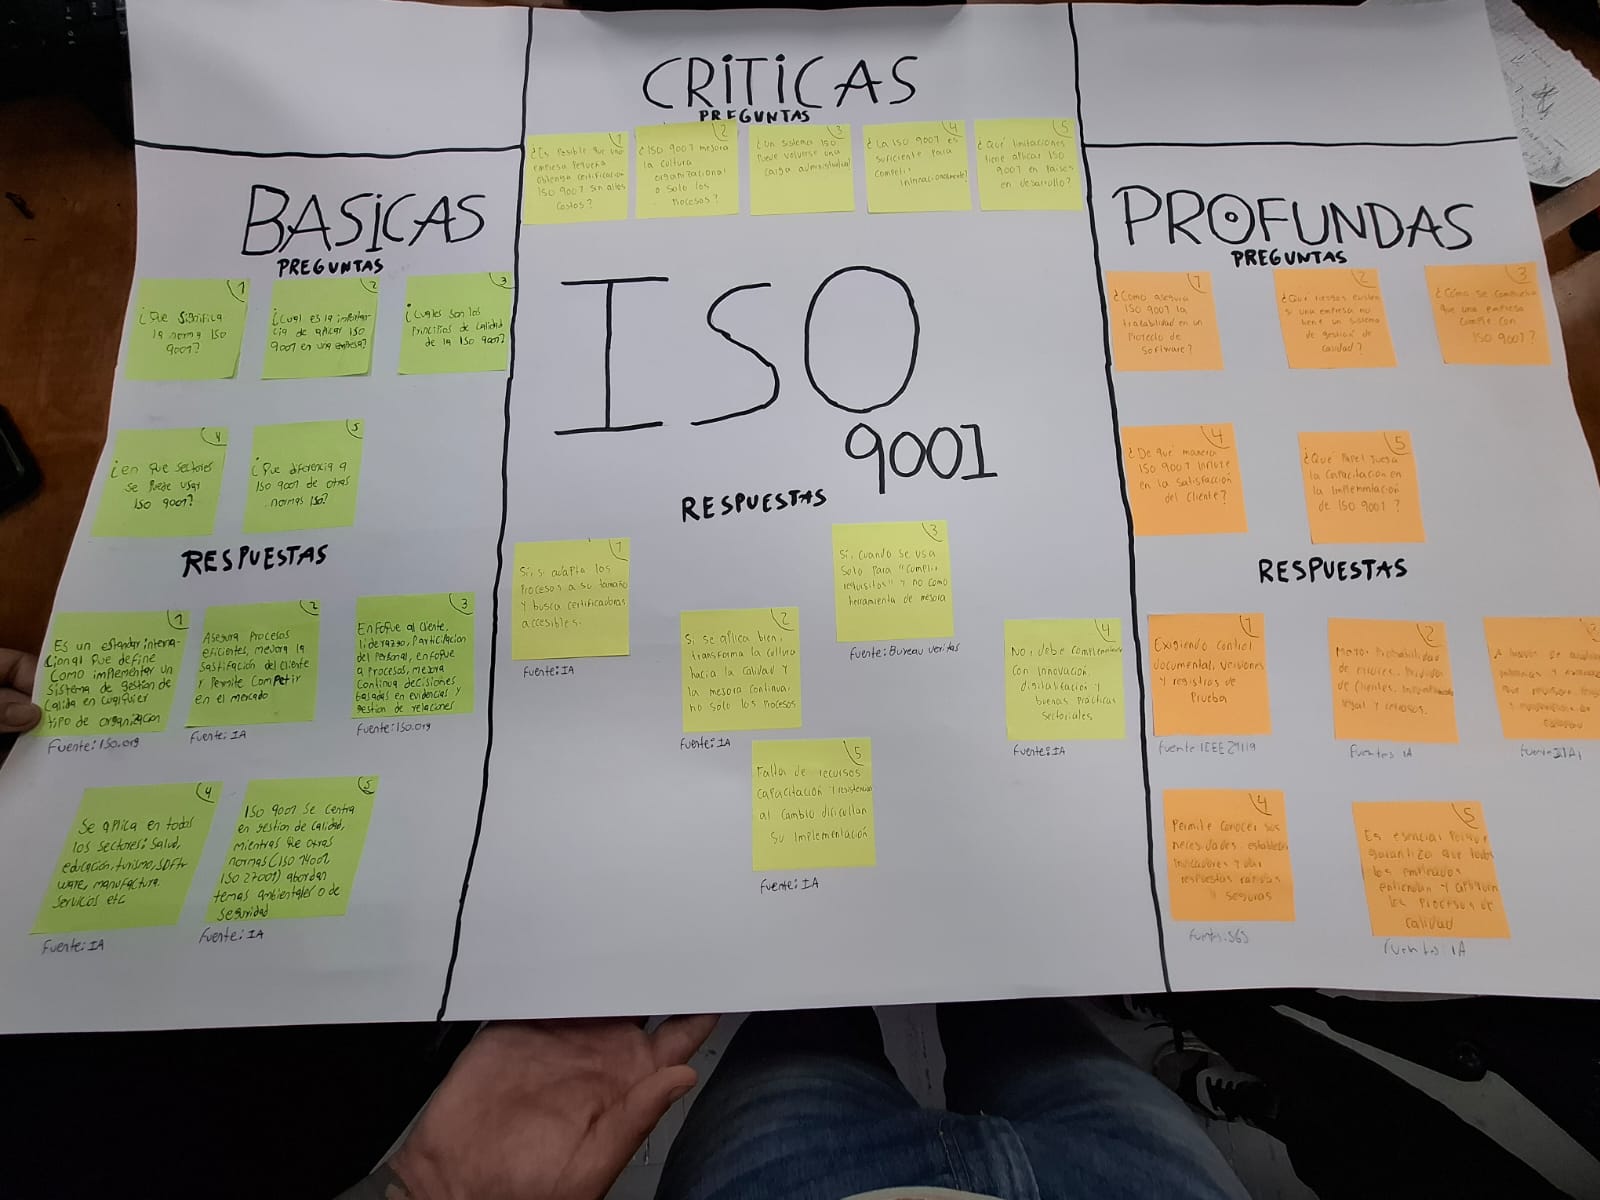 BASICAS
PREGUNTAS
1
¿Que Significa
la norma ISO
9001?
2
¿Cual es la importan
cia de aplicar ISO
9001 en una empresa?
3
¿Cuales son los
Principios de calidad
de la ISO 9001?
4
¿en que sectores
se puede usar
ISO 9001?
5
¿Que diferencia a
ISO 9001 de otras
normas ISO?
RESPUESTAS
1
Es un estandar interna-
cional que define
Como implementar un
Sistema de gestion de
Calida en cualquier
tipo de organizacion
Fuente: ISO.org
2
Asegura Procesos
eficientes, mejora la
Sastifación del cliente
y Permite Competir
en el mercado
Fuente: IA
3
Enfoque al Cliente,
liderazgo, Participacion
del Personal, enfoque
a Procesos, mejora
Continua, decisiones
basadas en evidencias y
gestion de relaciones
Fuente: ISO.org
4
Se aplica en todos
los Sectores: Salud,
educación, turismo, Softw
ware, manufactura.
Servicios etc
Fuente: IA
5
ISO 9001 Se Centra
en gestion de Calidad,
mientras que otras
normas (ISO 14001,
ISO 27001) abordan
temas ambientales o de
Seguridad
Fuente: IA
CRITICAS
PREGUNTAS
1
¿Es Posible que una
empresa Pequeña
obtenga certificación
ISO 9001 sin altos
Costos?
2
¿ISO 9001 mejora
la cultura
organizacional
o solo los
Procesos?
3
¿Un sistema ISO
Puede volverse una
carga administrativa?
4
¿La ISO 9001 es
suficiente para
competir
internacionalmente?
5
¿Qué limitaciones
tiene aplicar ISO
9001 en Paises
en desarrollo?
ISO
9001
RESPUESTAS
1
Si, si adapta los
Procesos a su tamaño
y busca certificadoras
accesibles.
Fuente: IA
2
Si, se aplica bien,
transforma la cultura
hacia la calidad y
la mejora continua,
no solo los procesos
Fuente: IA
3
Sí, cuando se usa
Solo para "cumplir
requisitos" y no como
herramienta de mejora
Fuente: Bureau veritas
4
No, debe complementarse
con innovación,
digitalización y
buenas Prácticas
Sectoriales
Fuente: IA
5
Falta de recursos
Capacitación y resistencia
al Cambio dificultan
Su implementación
Fuente: IA
PROFUNDAS
PREGUNTAS
1
¿Como asegura
ISO 9001 la
trazabilidad en un
Proyecto de
Software?
2
¿Qué riesgos existen
si una empresa no
tiene un sistema
de gestión de
calidad?
3
¿Cómo se comprueba
que una empresa
cumple con
ISO 9001?
4
¿De qué manera
ISO 9001 influye
en la satisfacción
del cliente?
5
¿Qué Papel juega
la capacitación en
la implementación
de ISO 9001?
RESPUESTAS
1
Exigiendo control
documental, versiones
y registros de
Prueba
Fuente: IEEE 29119
2
Mayor Probabilidad
de errores, Perdida
de clientes,
legal y
Fuentes IA
3
A
4
Permite conocer sus
necesidades, establecer
indicadores y dar
respuestas rápidas
y seguras
Fuentes: SGS
5
Es esencial Porque
garantiza que todos
los empleados
entiendan y apliquen
los Procesos de
calidad
Fuentes: IA